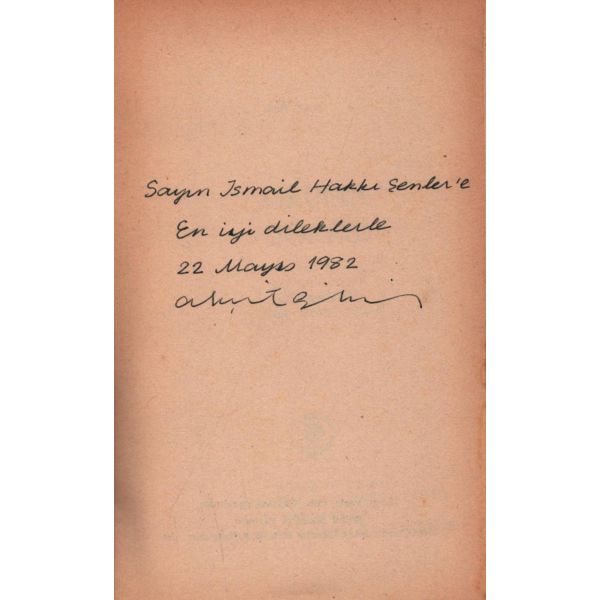 Sayın İsmail Hakkı Şenler'e
En iyi dileklerle
22 Mayıs 1982